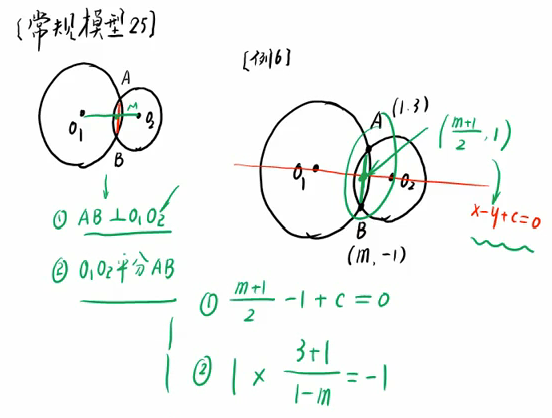 [常规模型25]
A
M
O₁
O₂
B
① AB⊥O₁O₂
② O₁O₂平分AB
[例6]
A
(1.3)
(m+1/2, 1)
O₁
O₂
B
(m, -1)
x-y+c=0
① m+1/2 -1+c=0
② 1× 3+1/1-m =-1